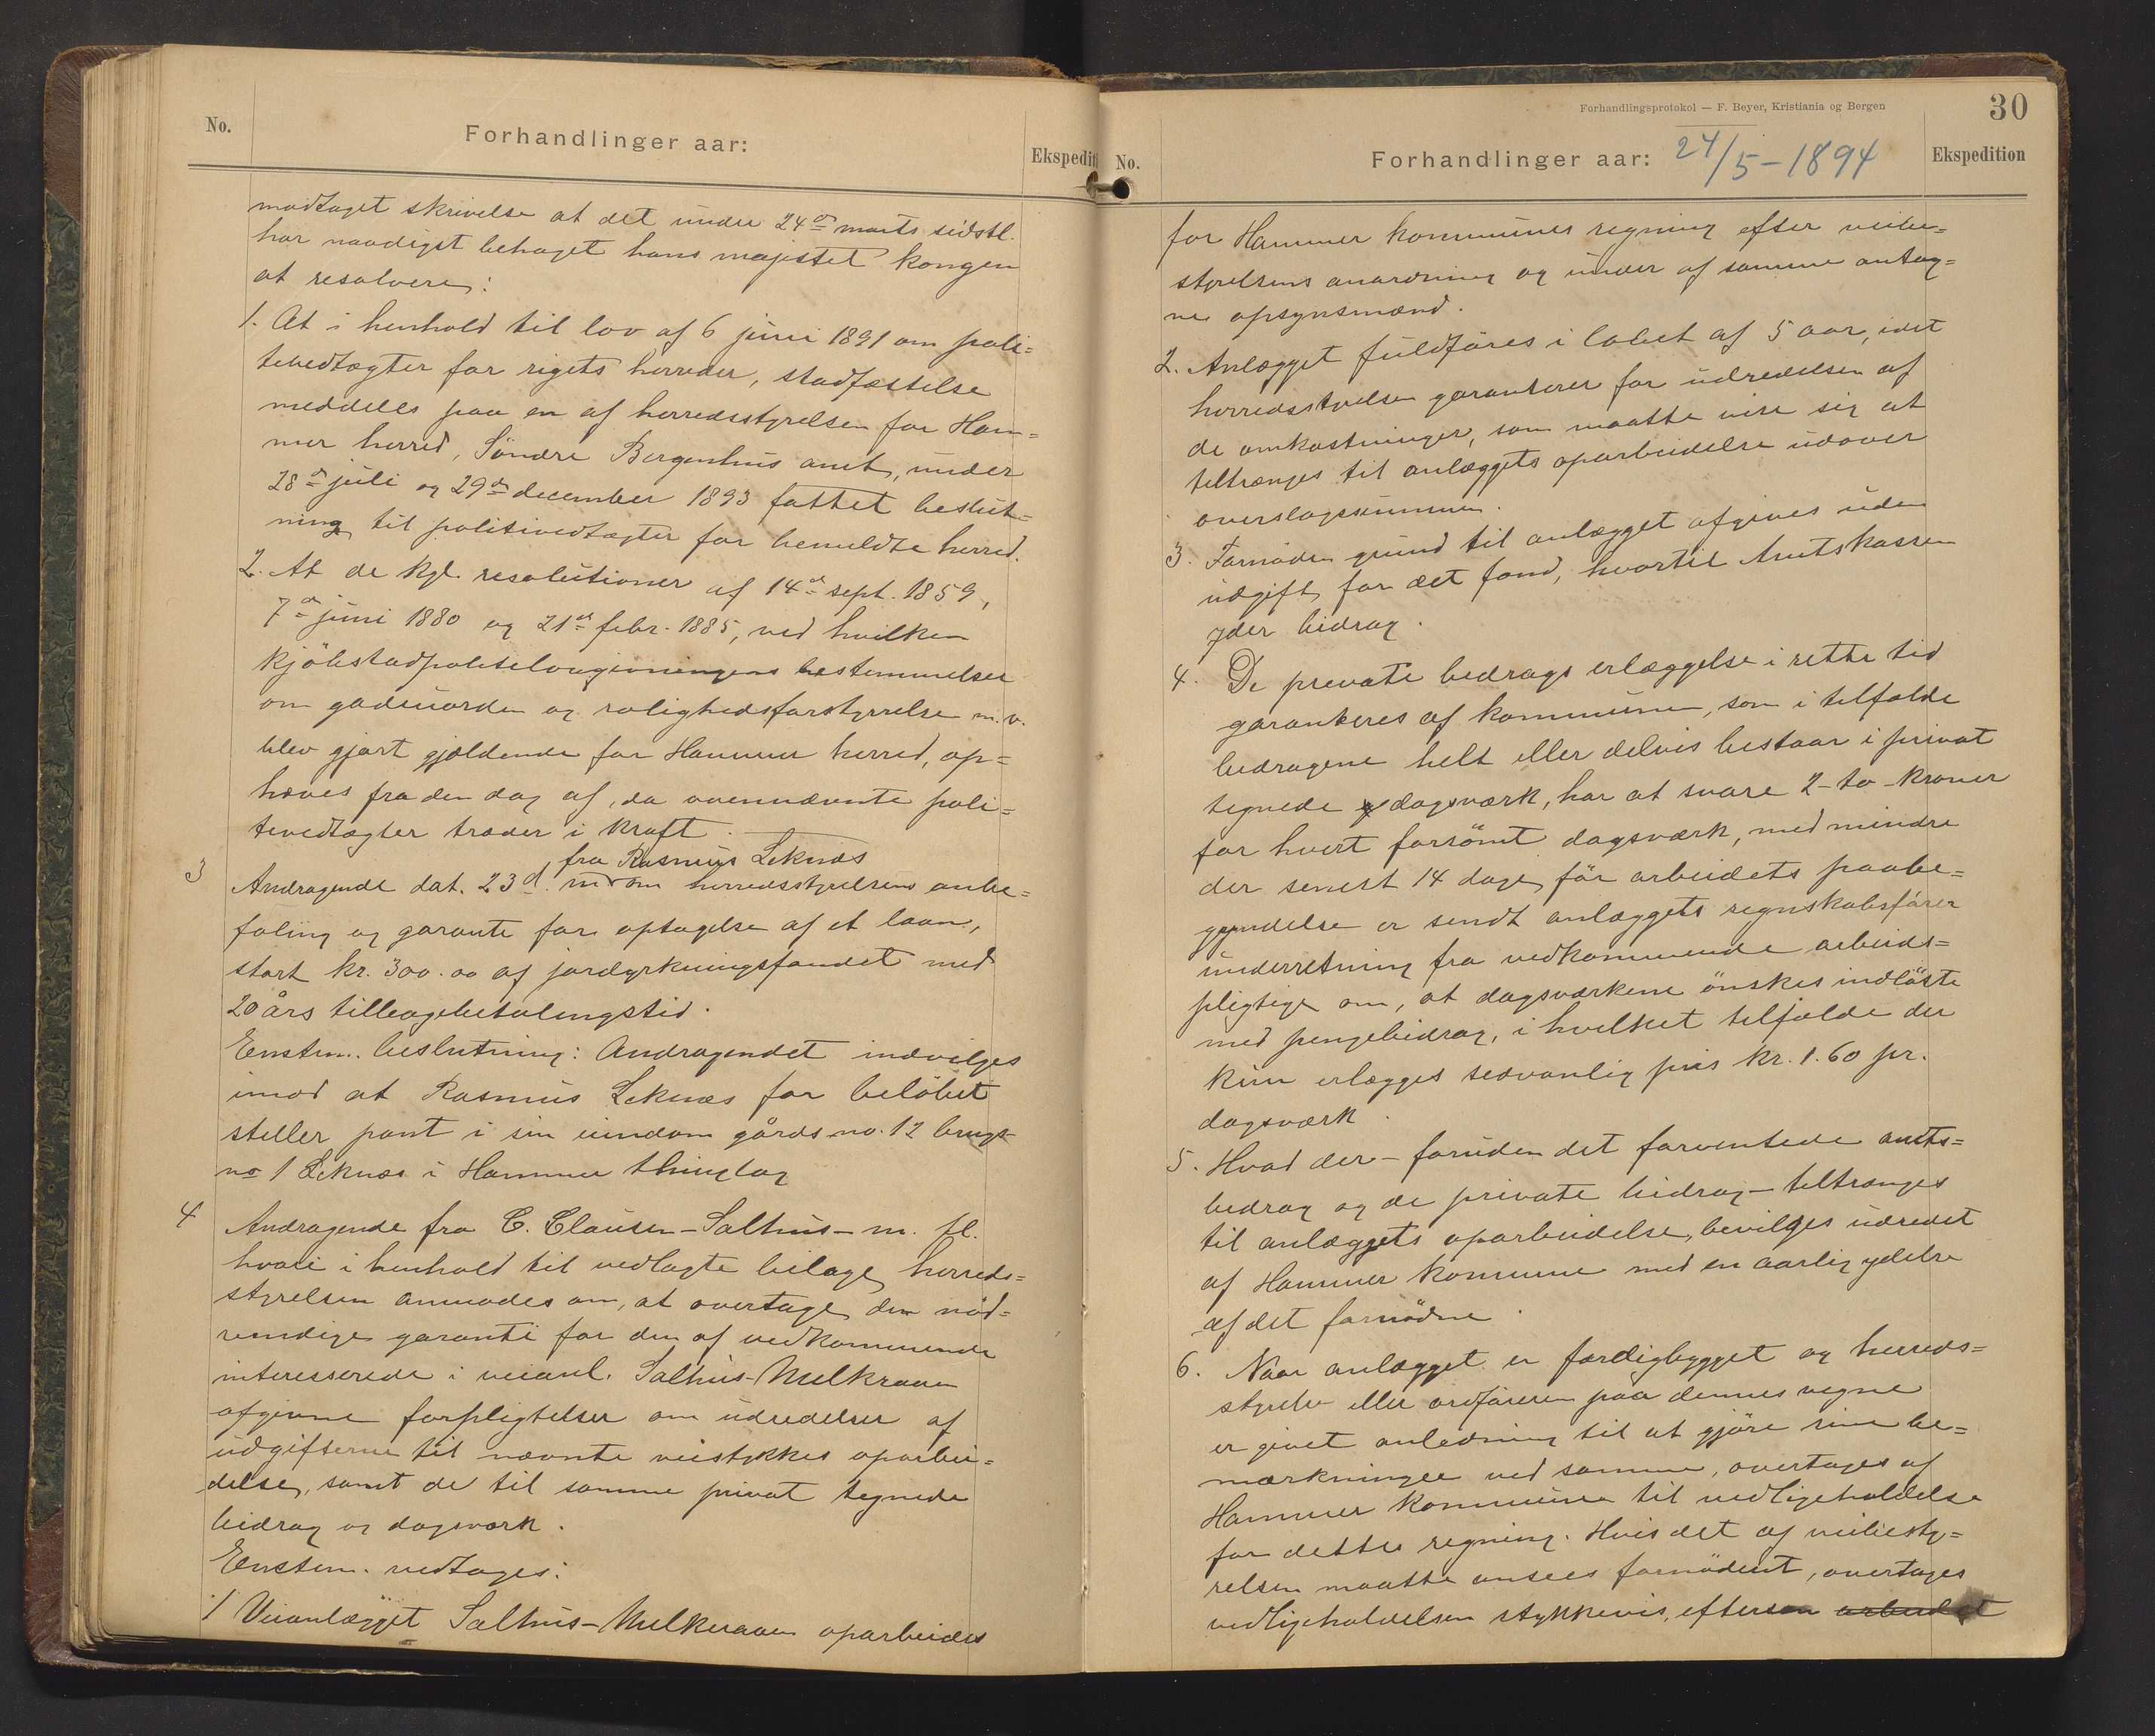 No.
Forhandlinger aar:
Ekspedit
modtaget skrivelse at det under 24de marts sidstl.
har naadigst behaget hans majestet kongen
at resolvere:
1. At i henhold til lov af 6 juni 1891 om poli=
tivedtægter for rigets herreder, stadfæstelse
meddeles paa en af herredsstyrelsen for Ham=
mer herred, Söndre Bergenhus amt, under
28de juli og 29de december 1893 fattet beslut=
ning til politivedtægter for bemeldte herred.
2. At de kgl. resolutioner af 14de sept. 1859,
7de juni 1880 og 21de febr. 1885, ved hvilken
kjöbstadpolitilovgivningens bestemmelser
om gadeuorden og rolighedsforstyrrelse m.v.
blev gjort gjældende for Hammer herred, op=
hæves fra den dag af, da ovennævnte poli=
tivedtægter træder i kraft.
3
fra Rasmus Leknæs
Andragende dat. 23d. m om herredsstyrelsens anbe=
faling og garanti for optagelse af et laan,
stort kr. 300.00 af jordyrkningsfondet med
20 års tilbagebetalingstid.
Enstm. beslutning: Andragendet indvilges
imod at Rasmus Leknæs for belöbet
stiller pant i sin eiendom gårds no. 12 brugs
no 1 Leknæs i Hammer thinglag
4
Andragende fra C. Clausen - Salhus - m. fl.
hvori i henhold til vedlagte bilage herreds=
styrelsen anmodes om, at overtage den nöd=
vendige garanti for den af vedkommende
interesserede i veianl. Salhus-Melkraaen
afgivne forpligtelser om udredelser af
udgifterne til nævnte veistykkes oparbei=
delse, samt de til samme privat tegnede
bidrag og dagsværk.
Enstem. vedtages:
1 Veianlægget Salhus-Melkraaen oparbeides
Forhandlingsprotokol — F. Beyer, Kristiania og Bergen
30
No.
Forhandlinger aar: 24/5-1894
Ekspedition
for Hammer kommunes regning efter veibe=
styrelsens anordning og under af samme antag=
ne opsynsmænd.
2. Anlægget fuldföres i löbet af 5 aar, idet
herredsstyrelsen garanterer for udredelsen af
de omkostninger, som maatte vise sig at
tiltrænges til anlæggets oparbeidelse udover
overslagssummen.
3. Fornöden grund til anlægget afgives uden
udgift for det fond, hvortil Amtskassen
yder bidrag.
4. De private bedrags erlæggelse i rette tid
garanteres af kommunen, som i tilfælde
bidragene helt eller delvis bestaar i privat
tegnede dagsværk, har at svare 2 - to - kroner
for hvert forsömt dagsværk, med mindre
der senest 14 dage för arbeidets paabe=
gyndelse er sendt anlæggets regnskabsförer
underretning fra vedkommende arbeids=
pligtige om, at dagsværkene önskes indlöste
med pengebidrag, i hvilket tilfælde der
kun erlægges sedvanlig pris kr. 1.60 pr.
dagsværk.
5. Hvad der - foruden det forventede amts=
bedrag og de private bidrag - tiltrænges
til anlæggets oparbeidelse, bevilges udredet
af Hammer kommune med en aarlig ydelse
af det fornödne.
6. Naar anlægget er færdigbygget og herreds=
styrelse eller ordföreren paa dennes vegne
er givet anledning til at gjöre sine be=
mærkninger ved samme, overtages af
Hammer kommune til vedligeholdelse
for dettes regning. Hvis det af veibesty=
relsen maatte ansees fornödent, overtages
vedligeholdelsen stykkevis, eftersom arbeidet